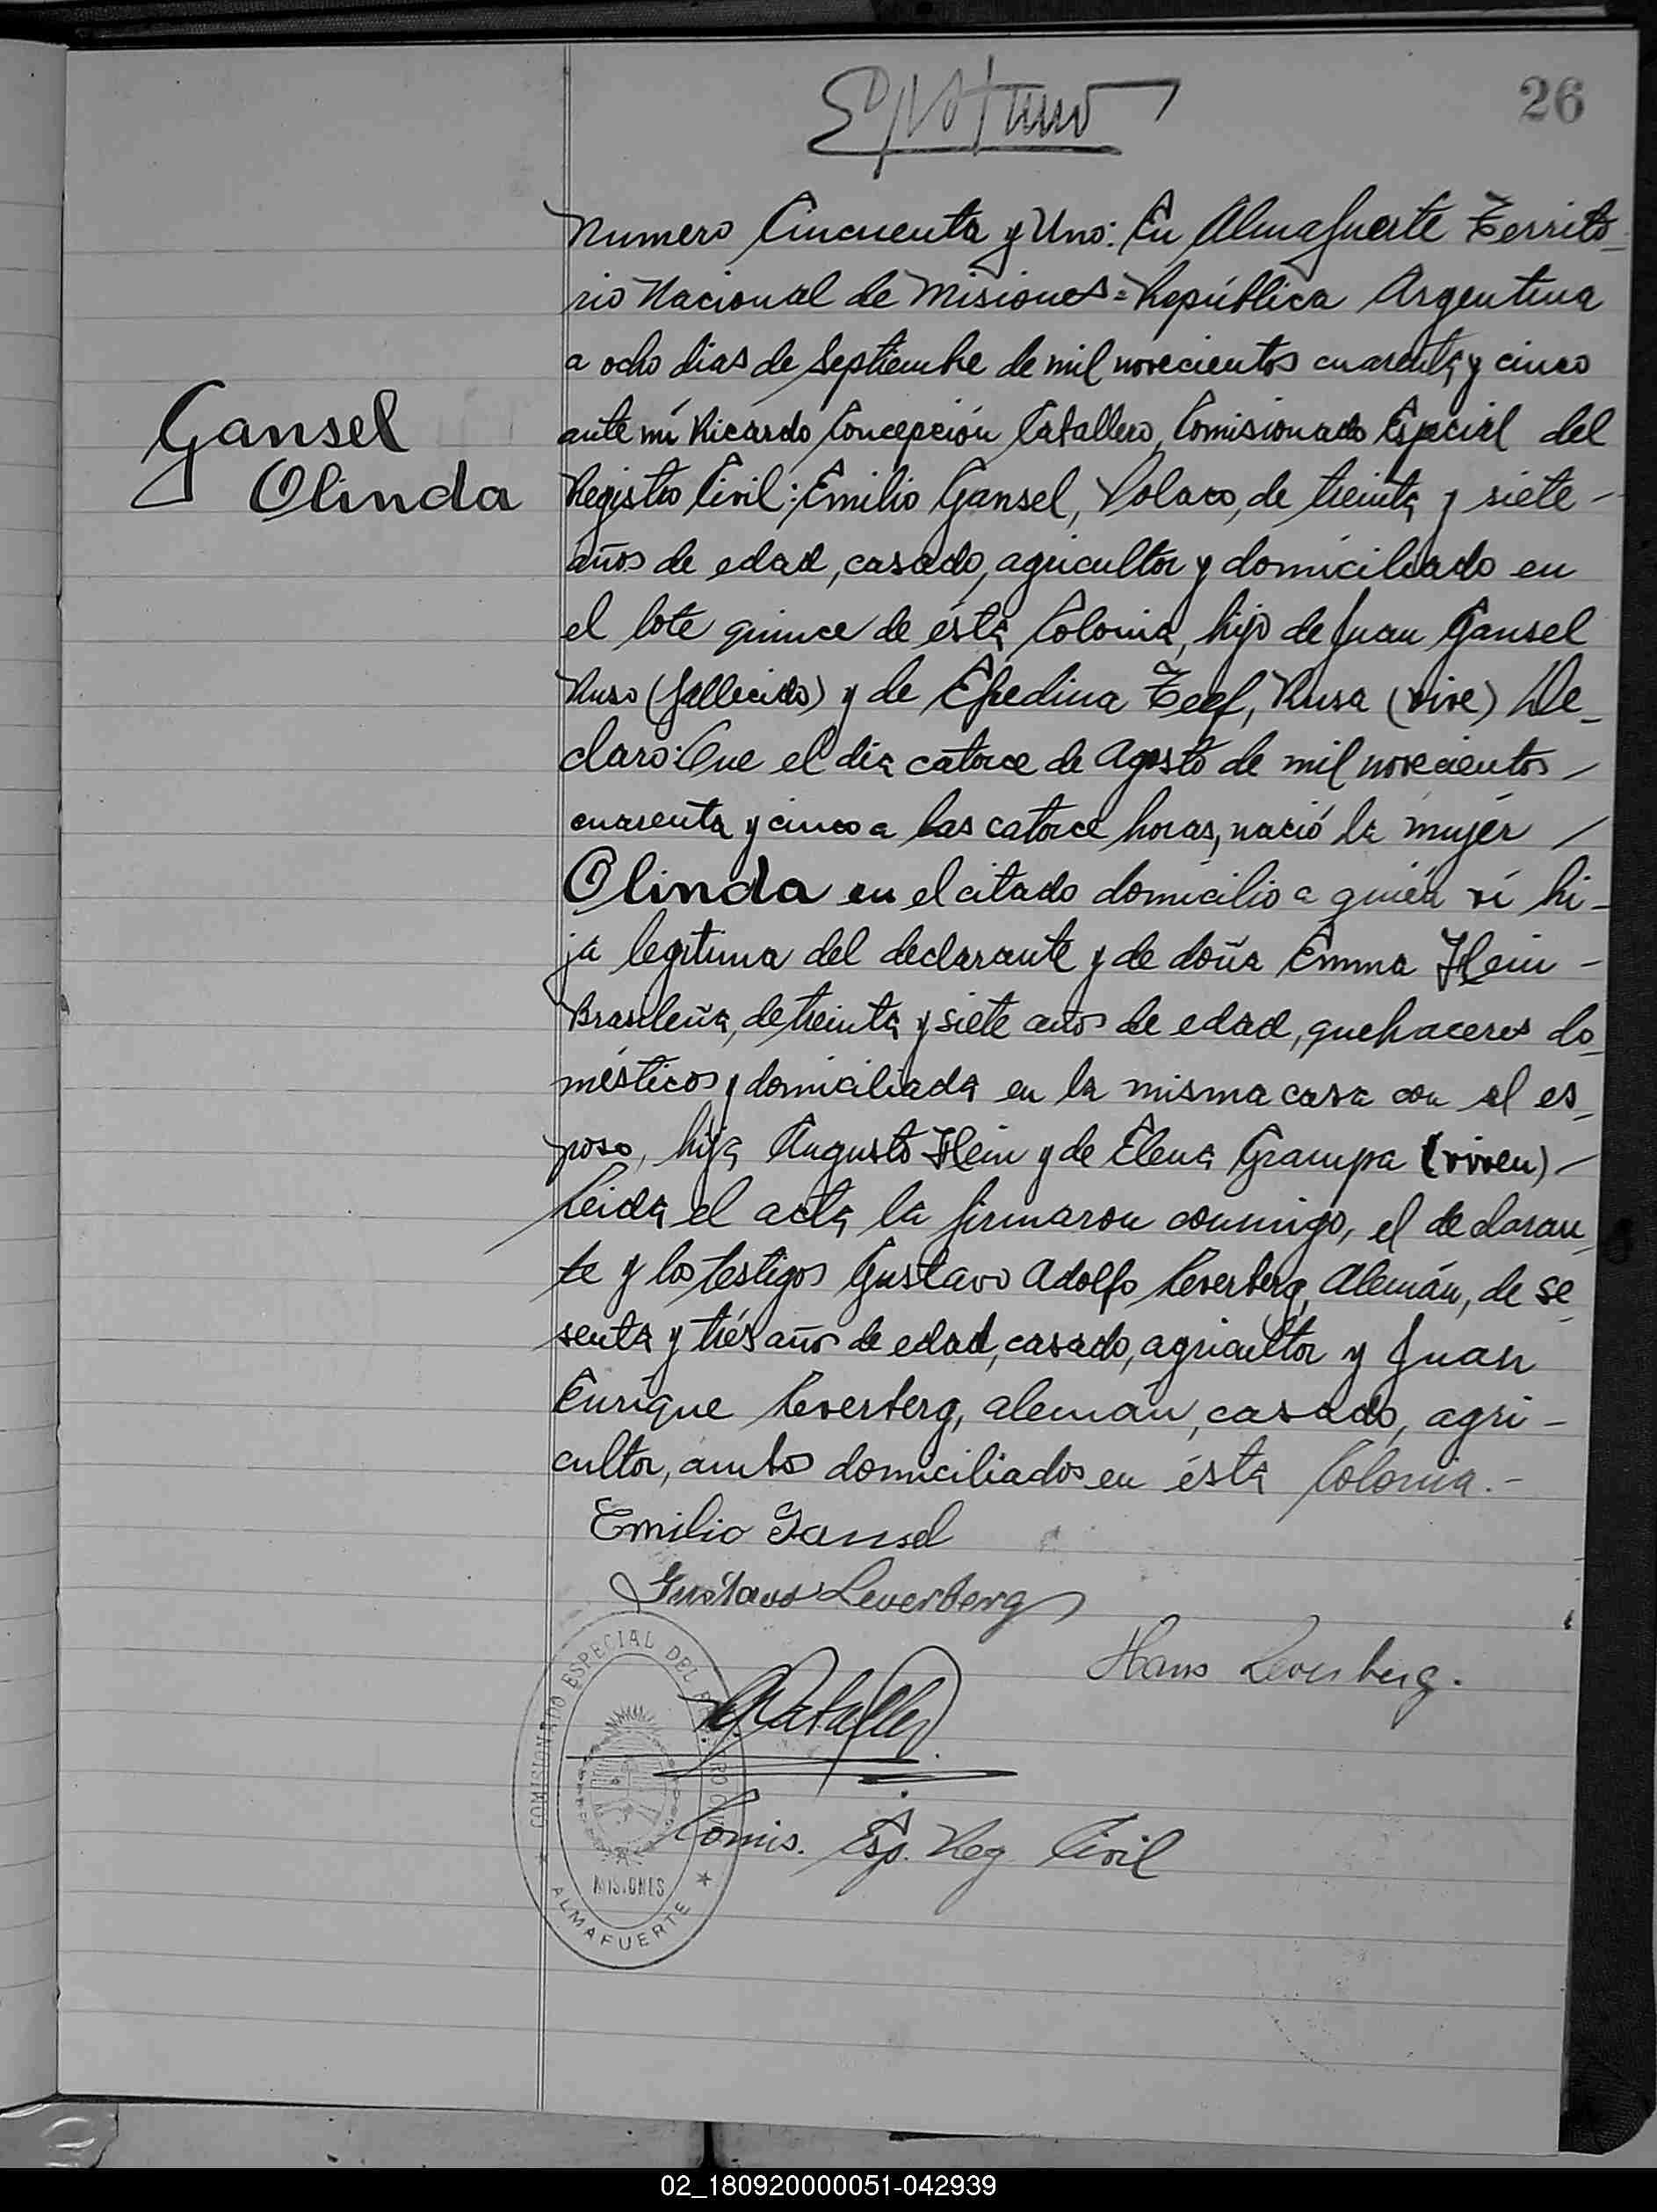 26
Numero Cincuenta y Uno: En Almafuerte Territo-
rio Nacional de Misiones = República Argentina
a ocho dias de Septiembre de mil novecientos cuarenta y cinco
ante mí Ricardo Concepción Caballero, Comisionado Especial del
Gansel
Olinda
Registro Civil: Emilio Gansel, Polaco, de treinta y siete -
años de edad, casado, agricultor y domiciliado en
el lote quince de ésta Colonia, hijo de Juan Gansel
Ruso (fallecido) y de Rusa (vive) De-
claro: Que el dia catorce de Agosto de mil novecientos /
cuarenta y cinco a las catorce horas, nació la mujér /
Olinda en el citado domicilio a quién ví hi-
ja legitima del declarante y de doña Emma Hein -
Brasileña, de treinta y siete años de edad, quehaceres do-
mésticos y domiciliada en la misma casa con el es-
poso, hija Augusto Hein y de Elena Grampa (viven) /
Leida el acta la firmaron conmigo, el declaran-
te y los testigos Gustavo Adolfo Leverberg, Alemán, de se-
senta y trés años de edad, casado, agricultor y Juan
Enrique Leverberg, alemán, casado, agri-
cultor, ambos domiciliados en ésta Colonia.-
Emilio Gansel
Gustavo Leverberg
Hans Leverberg.
Comis. Esp. Reg. Civil
COMISIONADO ESPECIAL DEL REGISTRO CIVIL
MISIONES
ALMAFUERTE
02_180920000051-042939